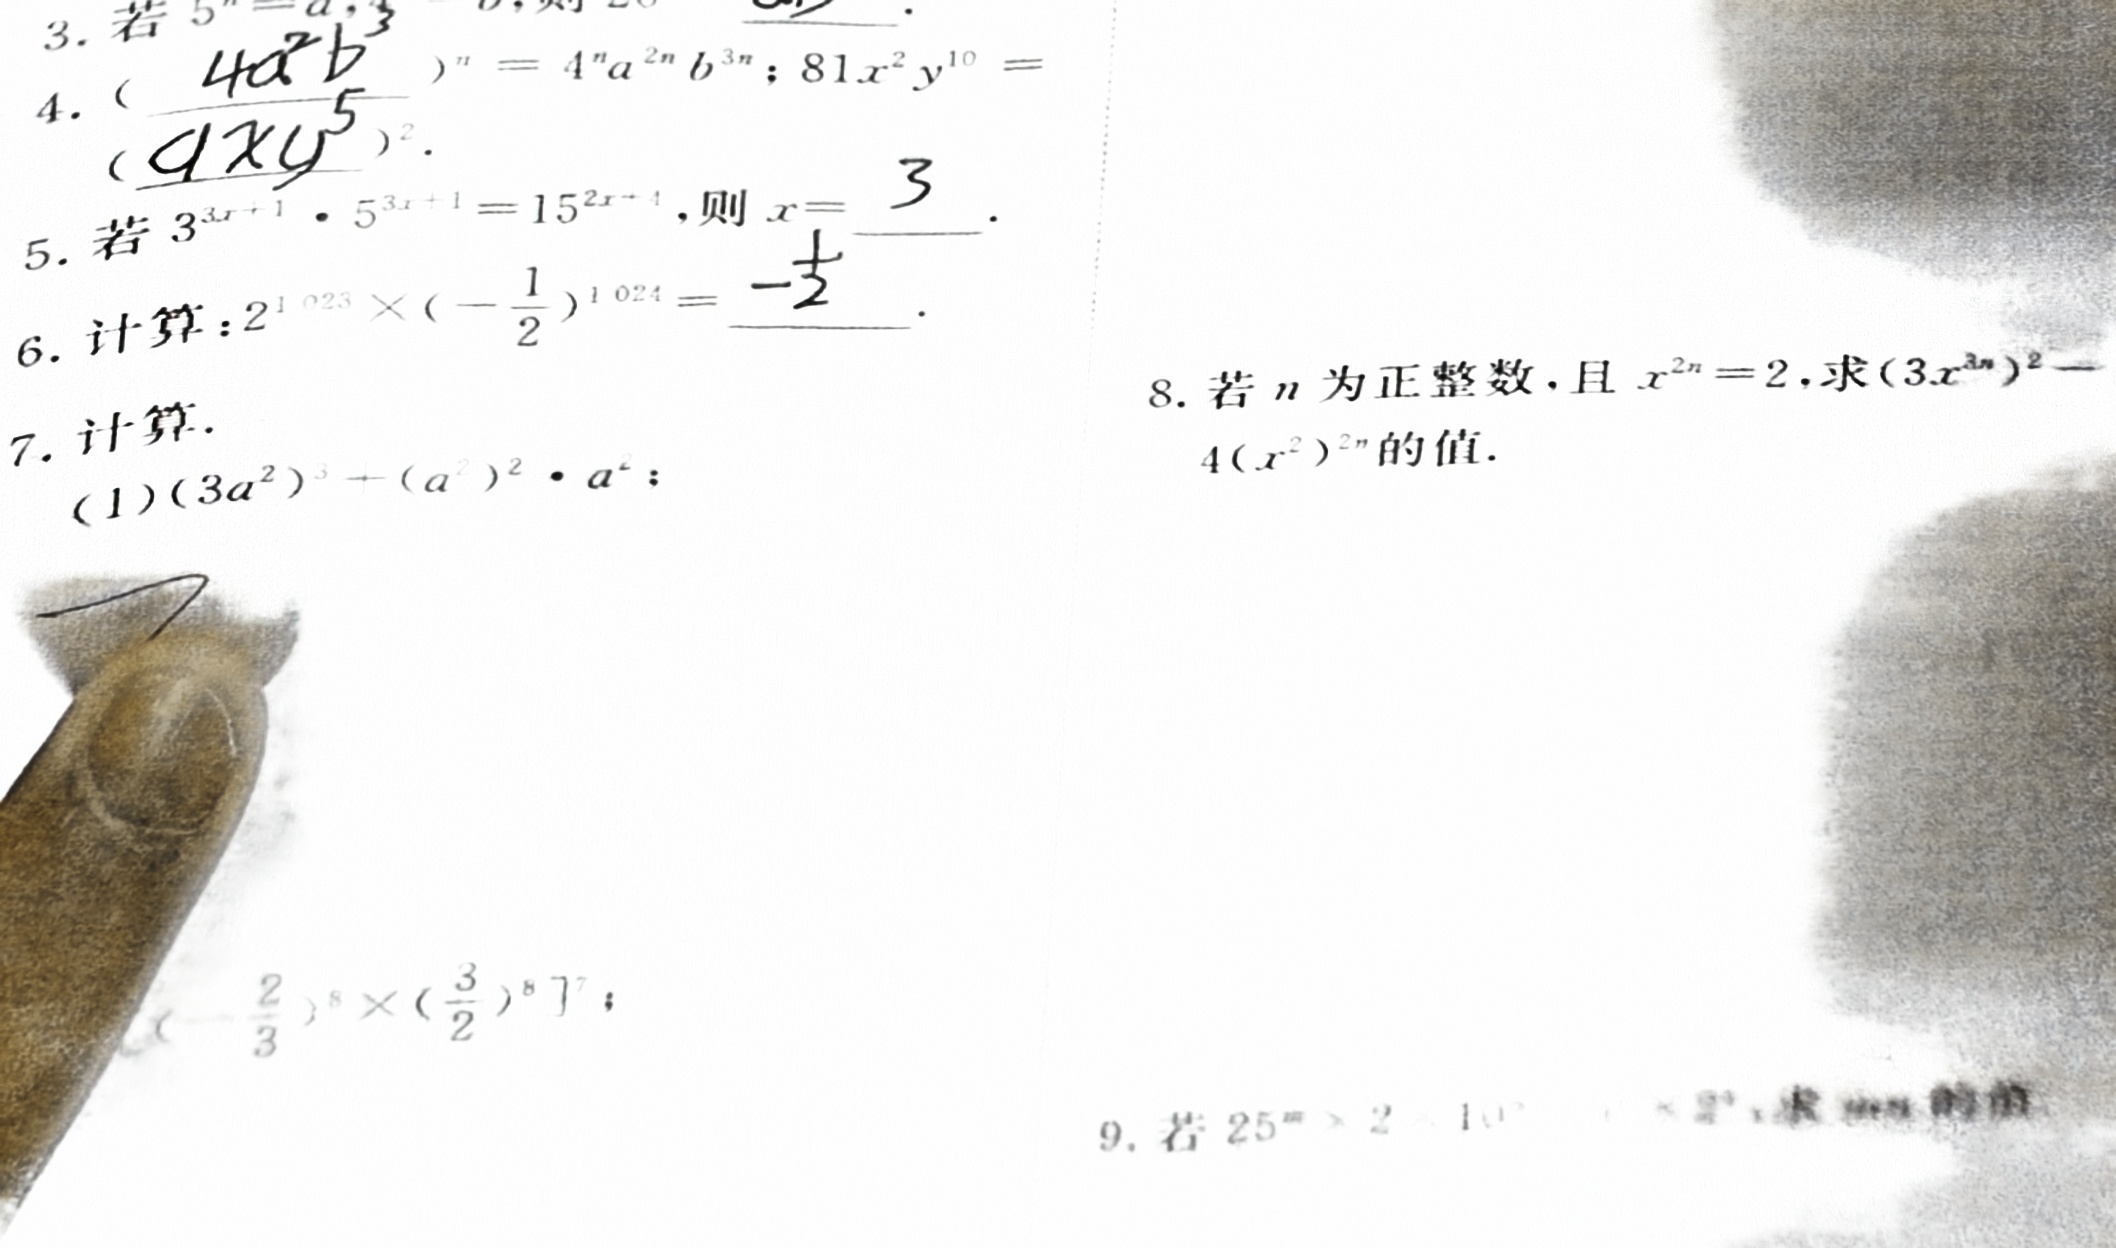 3. 若 5ⁿ = a,
4. ( 4a²b³ )ⁿ = 4ⁿa²ⁿb³ⁿ; 81x²y¹⁰ =
( 9xy⁵ )².
5. 若 3³ˣ⁺¹ · 5³ˣ⁺¹ = 15²ˣ⁺⁴, 则 x = 3 .
6. 计算: 2¹⁰²³ × (-1/2)¹⁰²⁴ = -1/2 .
7. 计算.
(1)(3a²)³ + (a²)² · a²;
(-2/3)⁸ × (3/2)⁸]⁷;
8. 若 n 为正整数, 且 x²ⁿ = 2, 求(3x³ⁿ)² -
4(x²)²ⁿ的值.
9. 若 25ᵐ × 2 × 10 × 2⁴, 求 mn 的值